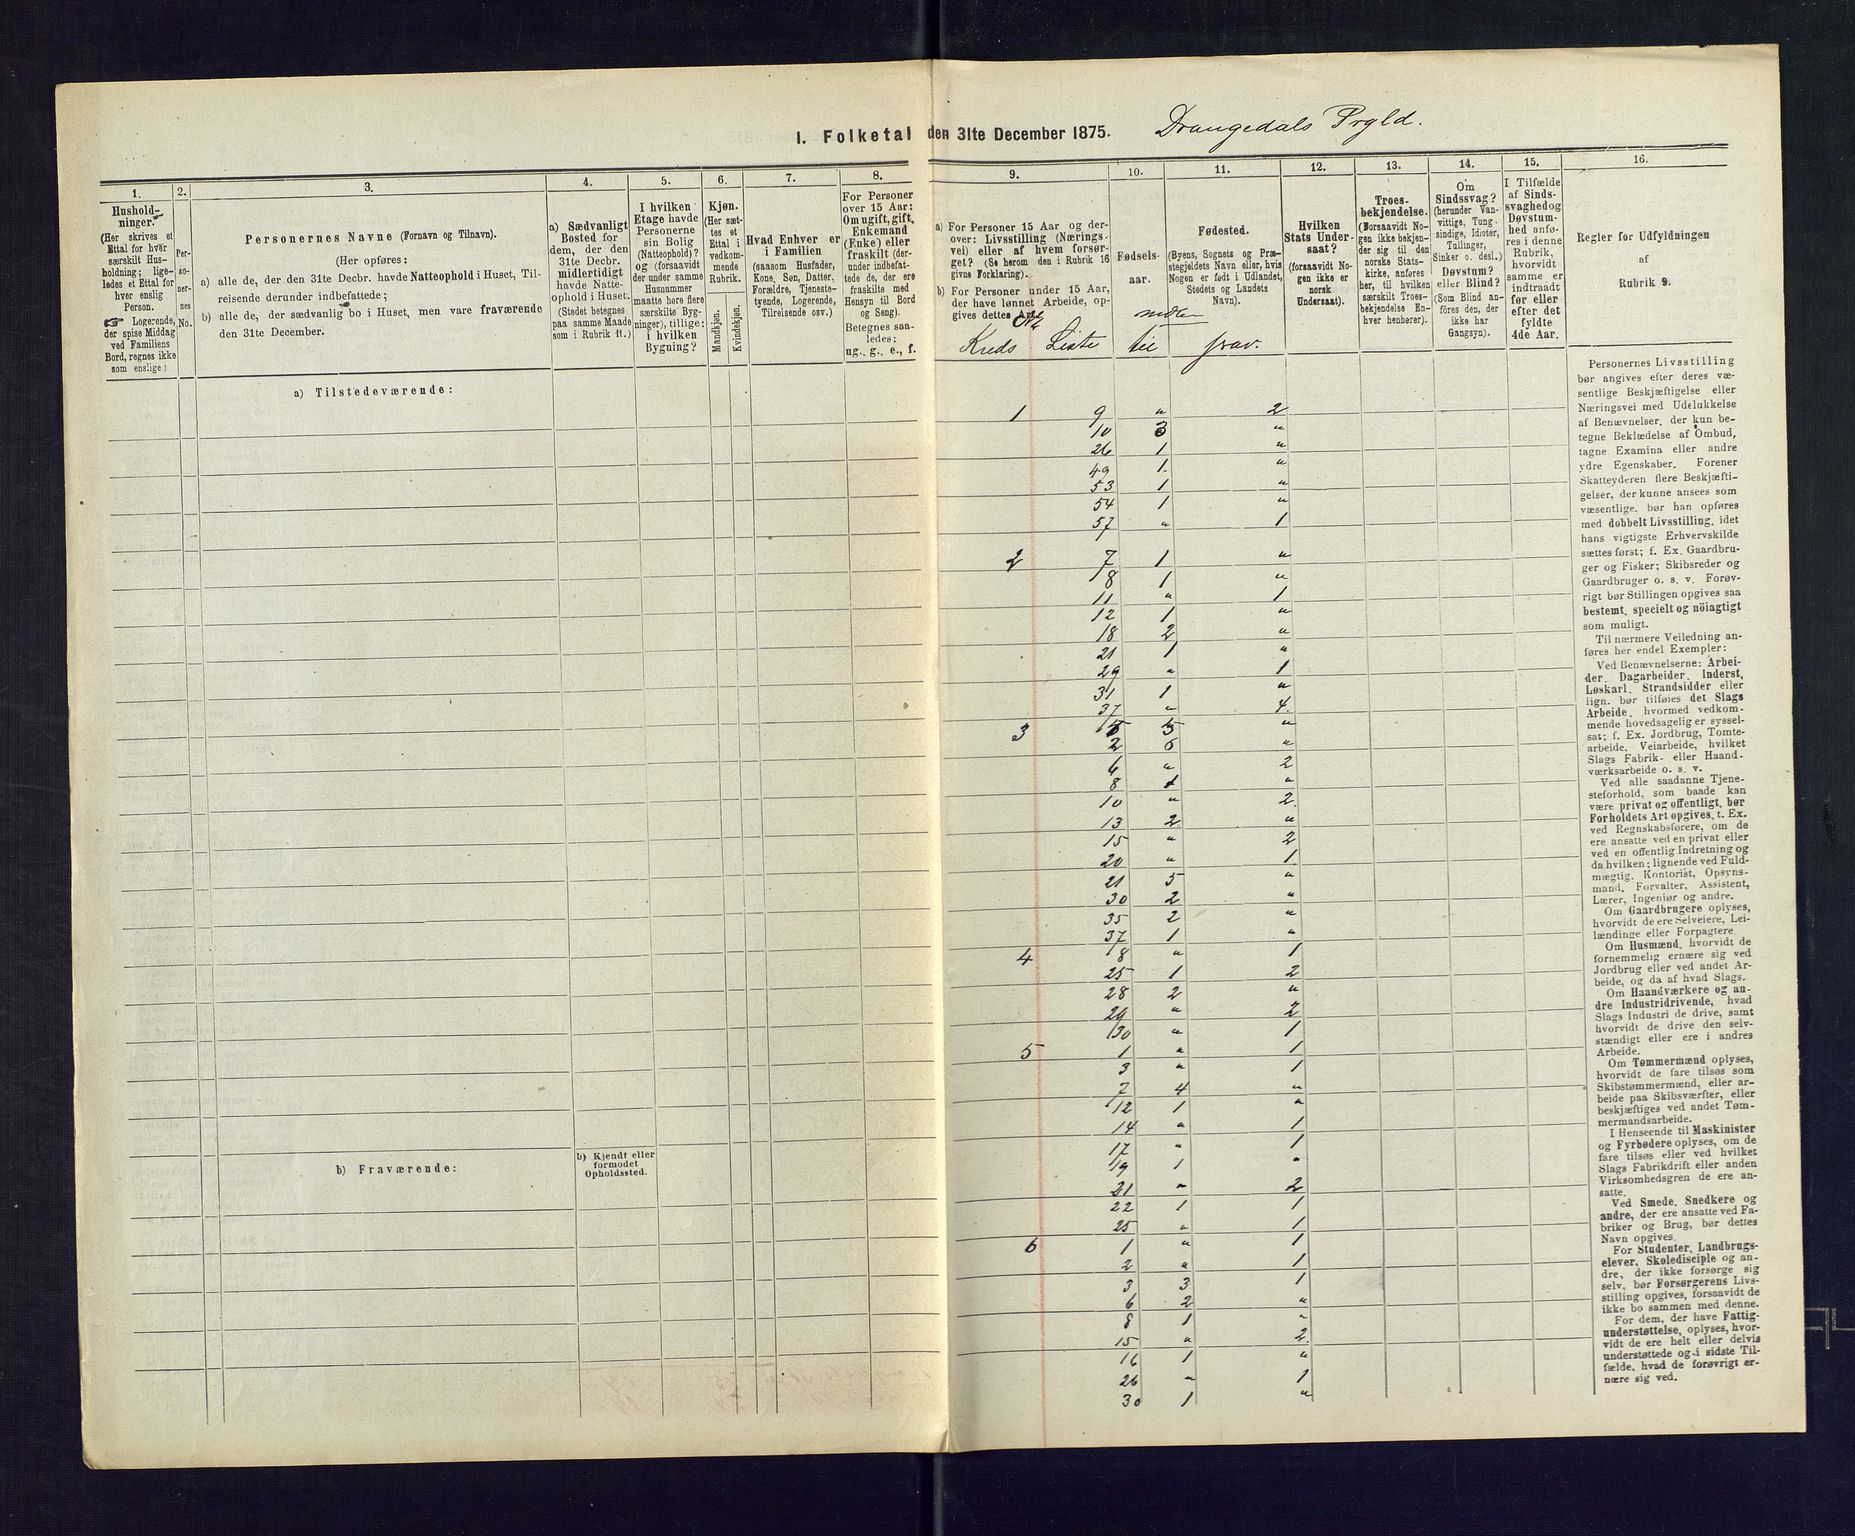 I. Folketal den 31te December 1875. Drangedals Prgld.
1.
Hushold-
ninger.
(Her skrives et
Ettal for hver
særskilt Hus-
holdning; lige-
ledes et Ettal for
hver enslig
Person.
Logerende,
der spise Middag
ved Familiens
Bord, regnes ikke
som enslige)
2.
Per-
so-
ner-
nes
No.
3.
Personernes Navne (Fornavn og Tilnavn).
(Her opføres:
a) alle de, der den 31te Decbr. havde Natteophold i Huset, Til-
reisende derunder indbefattede;
b) alle de, der sædvanlig bo i Huset, men vare fraværende
den 31te December.
4.
a) Sædvanligt
Bosted for
dem, der den
31te Decbr.
midlertidigt
havde Natte-
ophold i Huset.
(Stedet betegnes
paa samme Maade
som i Rubrik 11.)
5.
I hvilken
Etage havde
Personerne
sin Bolig
(Natteophold)?
og (forsaavidt
der under samme
Husnummer
maatte høre flere
særskilte Byg-
ninger), tillige:
i hvilken
Bygning?
6.
Kjøn.
(Her sæt-
tes et
Ettal i
vedkom-
mende
Rubrik.
Mandkjøn.
Kvindekjøn.
7.
Hvad Enhver er
i Familien
(saasom Husfader,
Kone, Søn, Datter,
Forældre, Tjeneste-
tyende, Logerende,
Tilreisende osv.)
8.
For Personer
over 15 Aar:
Om ugift, gift,
Enkemand
(Enke) eller
fraskilt (der-
under indbefat-
tede de, der ere
fraskilte med
Hensyn til Bord
og Seng).
Betegnes saa-
ledes:
ug., g., e., f.
9.
a) For Personer 15 Aar og der-
over: Livsstilling (Nærings-
vei) eller af hvem forsør-
get? (Se herom den i Rubrik 16
givne Forklaring).
b) For Personer under 15 Aar,
der have lønnet Arbeide, op-
gives dettes Art.
10.
Fødsels-
aar.
11.
Fødested.
(Byens, Sognets og Præ-
stegjeldets Navn eller, hvis
Nogen er født i Udlandet,
Stedets og Landets
Navn).
12.
Hvilken
Stats Under-
saat?
(forsaavidt No-
gen ikke er
norsk
Undersaat).
13.
Troes-
bekjendelse.
(Forsaavidt No-
gen ikke bekjen-
der sig til den
norske Stats-
kirke, anføres
her, til hvilken
særskilt Troes-
bekjendelse En-
hver henhører).
14.
Om
Sindssvag?
(herunder Van-
vittige, Tung-
sindige, Idioter,
Tullinger,
Sinker o. desl.)
Døvstum?
eller Blind?
(Som Blind an-
føres den, der
ikke har
Gangsyn).
15.
I Tilfælde
af Sinds-
svaghed og
Døvstum-
hed anfø-
res i denne
Rubrik,
hvorvidt
samme er
indtraadt
før eller
efter det
fyldte
4de Aar.
16.
Regler for Udfyldningen
af
Rubrik 9.
midler
Kreds Liste til frav.
a) Tilstedeværende:
1 9 " 2
10 3 "
26 1 "
49 1. "
53 1 "
54 1 "
57 " 1
2 7 1 "
8 1 "
11 " 1
12 1 "
18 2 "
21 1 "
29 " 1
31 1 "
37 " 4.
3 5 "
2 6 "
6 " 2
8 1 "
10 " 2.
13 2 "
15 " 2
20 " 1.
21 5 "
30 2 "
35 2 "
37 1 "
4 8 " 1
25 1 2
28 2 "
29 " 2
30 " 1
5 1 " 1
3 " 1
7 4 "
12 1 "
14 " 1
17 " 1
19 1 "
21 " 2
22 1 1
25 " 1
6 1 " 1
2 " 1
3 3 1
6 2 "
8 1 "
15 " 2.
16 1 "
26 " 1
30 1 "
b) Fraværende:
b) Kjendt eller
formodet
Opholdssted.
Personernes Livsstilling
bør angives efter deres væ-
sentlige Beskjæftigelse eller
Næringsvei med Udelukkelse
af Benævnelser, der kun be-
tegne Beklædelse af Ombud,
tagne Examina eller andre
ydre Egenskaber. Forener
Skatteyderen flere Beskjæfti-
gelser, der kunne ansees som
væsentlige, bør han opføres
med dobbelt Livsstilling, idet
hans vigtigste Erhvervskilde
sættes først; f. Ex. Gaardbru-
ger og Fisker; Skibsreder og
Gaardbruger o. s. v. Forøv-
rigt bør Stillingen opgives saa
bestemt, specielt og nöiagtigt
som muligt.
Til nærmere Veiledning an-
føres her endel Exempler:
Ved Benævnelserne: Arbei-
der, Dagarbeider, Inderst,
Løskarl, Strandsidder eller
lign. bør tilføies det Slags
Arbeide, hvormed vedkom-
mende hovedsagelig er syssel-
sat; f. Ex. Jordbrug, Tomte-
arbeide, Veiarbeide, hvilket
Slags Fabrik- eller Haand-
værksarbeide o. s. v.
Ved alle saadanne Tjene-
steforhold, som baade kan
være privat og offentligt, bør
Forholdets Art opgives, t. Ex.
ved Regnskabsførere, om de
ere ansatte ved en privat eller
ved en offentlig Indretning og
da hvilken; lignende ved Fuld-
mægtig, Kontorist, Opsyns-
mand, Forvalter, Assistent,
Lærer, Ingeniør og andre.
Om Gaardbrugere oplyses,
hvorvidt de ere Selveiere, Lei-
lændinge eller Forpagtere.
Om Husmænd, hvorvidt de
fornemmelig ernære sig ved
Jordbrug eller ved andet Ar-
beide, og da af hvad Slags.
Om Haandværkere og an-
dre Industridrivende, hvad
Slags Industri de drive, samt
hvorvidt de drive den selv-
stændigt eller ere i andres
Arbeide.
Om Tømmermænd oplyses,
hvorvidt de fare tilsøs som
Skibstømmermænd, eller ar-
beide paa Skibsværfter, eller
beskjæftiges ved andet Tøm-
mermandsarbeide.
I Henseende til Maskinister
og Fyrbødere oplyses, om de
fare tilsøs eller ved hvilket
Slags Fabrikdrift eller anden
Virksomhedsgren de ere an-
satte.
Ved Smede, Snedkere og
andre, der ere ansatte ved Fa-
briker og Brug, bør dettes
Navn opgives.
For Studenter, Landbrugs-
elever, Skoledisciple og an-
dre, der ikke forsørge sig
selv, bør Forsørgerens Livs-
stilling opgives, forsaavidt de
ikke bo sammen med denne.
For dem, der have Fattig-
understøttelse, oplyses, hvor-
vidt de ere helt eller delvis
understøttede og i sidste Til-
fælde, hvad de forøvrigt er-
nære sig ved.